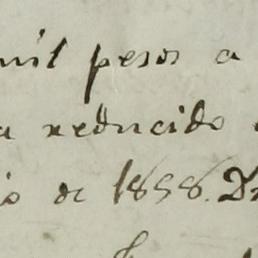 mil pesos a
a reducido
io de 1858. D